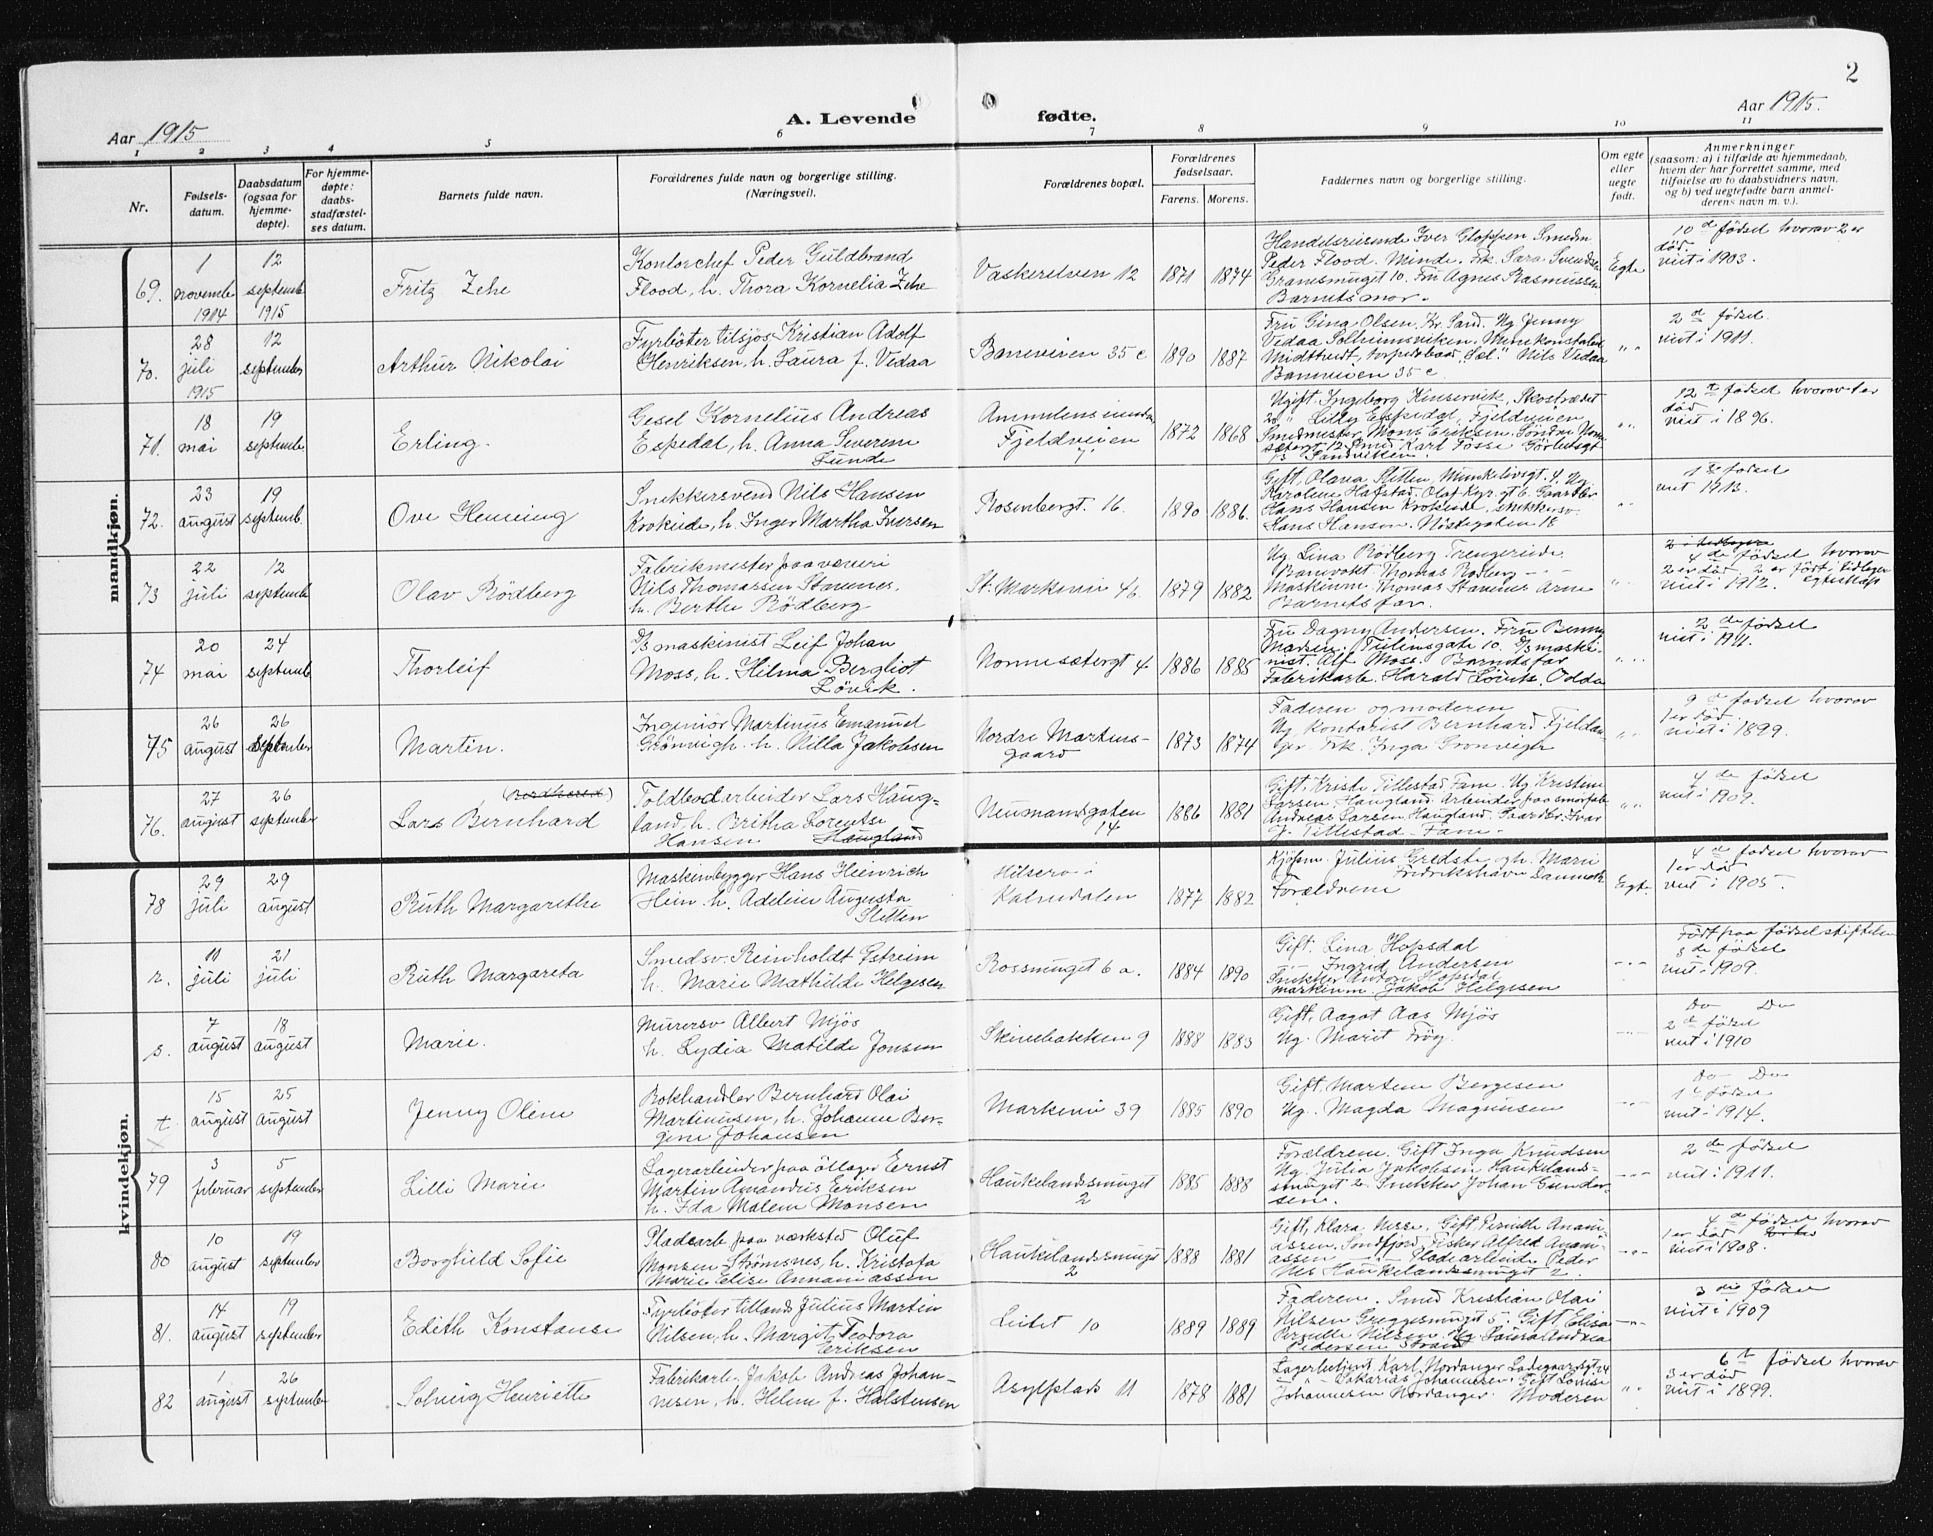 2
Aar 1915
A. Levende
fødte.
Aar 1915.
1 2 3 4 5 6 7 8 9 10 11
Nr.
Fødsels-
datum.
Daabsdatum
(ogsaa for
hjemme-
døpte).
For hjemme-
døpte:
daabs-
stadfæstel-
ses datum.
Barnets fulde navn.
Forældrenes fulde navn og borgerlige stilling.
(Næringsvei).
Forældrenes bopæl.
Forældrenes
fødselsaar.
Farens. Morens.
Faddernes navn og borgerlige stilling.
Om egte
eller
uegte
født.
Anmerkninger
(saasom: a) i tilfælde av hjemmedaab,
hvem der har forrettet samme, med
tilføielse av to daabsvidners navn,
og b) ved uegtefødte barn anmel-
derens navn m. v.).
mandkjøn.
69.
1
novembe
1914
12
septemb
1915
Fritz Zehe
Kontorchef Peder Guldbrand
Flood, h. Thora Kornelia Zehe
Vaskerelven 12
1871 1874
Handelsreisende Iver Gloppen
Peder Flood. Minde. Frk. Sara
Fru Agnes Rasmussen
Barnets mor.
Egte
10de fødsel hvorav 2 er
død.
viet i 1903.
70.
28
juli
1915
12
september
Arthur Nikolai
Fyrbøter tilsjøs Kristian Adolf
Henriksen, h. Laura f. Vedaa
Baneveien 35 c
1890 1887
Fru Gina Olsen, Kr. Sand. Ug Jenny
Vedaa Solheimsviken. Minekonstabel
torpedobaad "Sæl" Nils Vedaa
Baneveien 35 c
" "
2de fødsel.
viet i 1911.
71.
18
mai
19
septembe
Erling.
Gesel Kornelius Andreas
Espedal, h. Anna Severine
Lunde
Fjeldveien
7
1872 1868
Ugift Ingeborg Kinservik, Skostrædet
20 " Lilly Espedal, Fjeldveien
Smedmester Mons Eriksen
Smed Karl Fosse
Sandviken.
" "
12te fødsel hvorav 1 er
død
viet i 1896.
72.
23
august
19
septemb.
Ove Henning
Snekkersvend Nils Hansen
Krokeide, h. Inger Martha Iversen
Rosenbergt. 16.
1890 1886.
Gift, Olava Sletten, Munkelivsgt. 4, Ug
Karoline Hafstad, Olaf Kyr. gt 6
Hans Hansen Krokeide, snekkersv.
Hans Hansen. Nøstegaten 18
" "
1ste fødsel
viet 1913.
73
22
juli
12
septembe
Olav Rödberg
Fabrikmester paa væveri
Nils Thomassen Stavenes,
h. Berthe Rödberg
St. Markevei 46.
1879 1882
Ug. Lina Rödberg Trengereide
Banevokt. Thomas Rødberg - " -
Maskinm. Thomas Stavenes Arne
Barnets far.
" "
4de fødsel hvorav
2 er død, 2 er født i tidligere
viet i 1912. egteskap
74
20
mai
24
septemb
Thorleif
D/S maskinist Leif Johan
Moss, h. Hilma Bergliot
Lövik.
Nonnesætergt 4.
1886 1885
Fru Dagny Andersen. Fru Benny
Madsen. 10. D/S maski-
nist. Alf Moss. Barnets far
Fabrikarb. Harald Lövik, Odda
" "
2de fødsel
viet i 1911.
75
26
august
26
September
Martin.
Ingeniør Martinus Emanuel
Grønvigh. h. Nilla Jakobsen
Nordre Martens-
gaard
1873 1874
Faderen og moderen
Ug Kontorist Bernhard Fjeldan-
ger. Frk. Inga Gronviger
" "
9de fødsel hvorav
1 er død.
viet i 1899.
76.
27
august
26
september
Lars Bernhard
Toldbodarbeider Lars Haug-
land, h. Britha Lorentse
Hansen Haugland
Neumannsgaten
14
1886 1881
Gift, Kriste Tillestad Fane. Ug Kristine
Larsen Haugland. Arbeider paa smørfab.
Andreas Larsen Haugland. Gaardbr. Ivar
J. Tillestad - Fane -
" "
4de fødsel
viet i 1909.
kvindekjøn.
78
29
juli
29
august
Ruth Margarethe
Maskinbygger Hans Heinrich
Hein h. Adeline Augusta
Sletten
i
Kalvedalen
1877 1882
Kjøpm. Julius Gredste og h. Marie
Fredrikshavn Danmark
Forældrene
Egte.
4de fødsel hvorav
1 er død
viet i 1905.
r.
11
juli
21
juli
Ruth Margareta
Smedsv. Reinholdt Ystreim
h. Marie Mathilde Helgesen
Rossmuget 6 a.
1884 1890
Gift. Lina Hopsdal
" Ingrid Andersen
Snekker Anton Hopsdal
Jakob Helgesen
- " -
Født paa fødselsstiftelsen
3de fødsel
viet i 1909.
s.
7
august
18
august
Marie.
Murersv Albert Mjös
h. Lydia Matilde Jonsen
Skivebakken 9
1888 1883
Gift, Aagot Aas Mjös
Ug. Marit Fröy.
- " -
Do Do
2de fødsel
viet i 1910
t.
15
august
25
august
Jenny Oline
Bokhandler Bernhard Olai
Martinusen, h. Johanne Ber-
gine Johansen
Markevei 39
1885 1890
Gift, Marten Borgesen
Ug. Magda Magnusen
- " -
Do Do
1ste fødsel
viet i 1914.
79
3
februar
5
september
Lilli Marie
Lagerarbeider paa ōllager Ernst
Martin Amandus Eriksen
h. Ida Malene Monsen
Haukelandssmuget
2
1885 1888
Forældrene. Gift Inga Knudsen
Ug. Julia Jakobsen Haukelands-
smuget 2. Snekker Johan Gunder-
sen.
- " -
2de fødsel
viet i 1911.
80
10
august
19
september
Borghild Sofie
Pladearb paa værksted Oluf
Monsen Strömsnes, h. Kristofa
Marie Elise Annaniassen
Haukelandssmuget
2
1888 1881
Gift, Klara Gift, Pernille Anani-
assen, Søndfjord, Fisker Alfred Anani-
assen Pladearbeider Peder
Nes Haukelandssmuget 2.
- " -
4de fødsel hvorav
1 er død
viet i 1908.
81.
14
august
19
september
Edith Konstanse
Fyrbøter tillands Julius Martin
Nilsen, h. Margit Teodora
Eriksen
Leitet 10
1889 1889
Faderen. Smed Kristian Olai
Nilsen 5. Gift Elisa
Pernille Nilsen. Ug. Laura Andrea
Pedersen Strand
- " -
3die fødsel
viet i 1909
82
1
august
26
september
Solveig Henriette
Fabrikarb. Jakob Andreas Johan-
nesen, h. Helene f. Halstensen
Asylplads 11
1878 1881
Lagerbetjent, Karl Nordanger Ladegaardsgt 24
" Sakarias Johannesen. Gift Lovise
Johannesen Nordanger. Moderen
" "
6te fødsel hvorav
3 er død
viet i 1899.